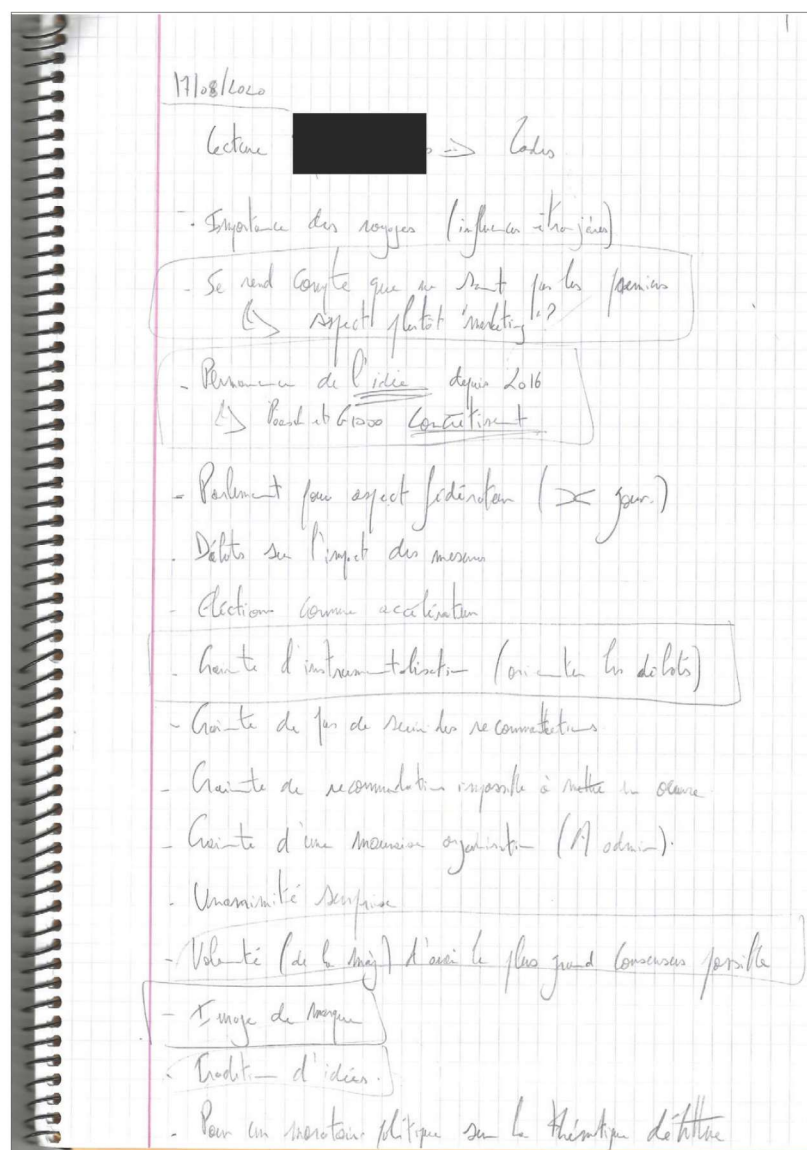 1
17/08/2020
Lecture => Codes
- Importance des voyages (influences étrangères)
- Se rend compte que ne sont pas les premiers
↳ Aspect plutôt "marketing"?
- Permanence de l'idée depuis 2016
↳ et G1000 concrétisent
- Parlement pour aspect fédérateur ( jour.)
- Débats sur l'impact des mesures
- Elections comme accélérateur
- Crainte d'instrumentalisation (orienter les débats)
- Crainte de pas de suivi des
- Crainte de impossible à mettre en oeuvre
- Crainte d'une mauvaise organisation ( admin).
- Unanimité surprise
- Volonté (de la maj) d'avoir le plus grand consensus possible
- Image de marque
- Tradition d'idées.
- Pour un politique sur la thématique